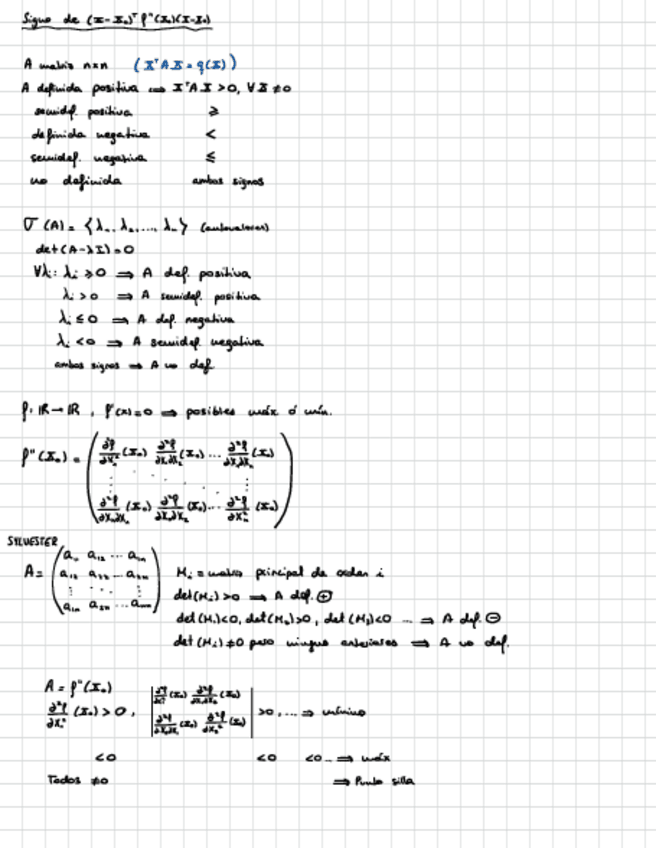 Signo de (x-x₀)ᵀ f''(x₀)(x-x₀)
A matriz n×n (xᵀAx = q(x))
A definida positiva ⟺ xᵀAx > 0, ∀x ≠ 0
semidef. positiva ≥
definida negativa <
semidef. negativa ≤
no definida ambos signos
σ(A) = {λ₁, λ₂, ..., λₙ} (autovalores)
det(A-λI) = 0
∀λᵢ: λᵢ ≥ 0 ⇒ A def. positiva
λᵢ > 0 ⇒ A semidef. positiva
λᵢ ≤ 0 ⇒ A def. negativa
λᵢ < 0 ⇒ A semidef. negativa
ambos signos ⇒ A no def
f: ℝ → ℝ, f'(x) = 0 ⇒ posibles máx ó mín.
f''(x₀) = ( ∂²f/∂x₁² (x₀) ∂²f/∂x₁∂x₂ (x₀) ... ∂²f/∂x₁∂xₙ (x₀)
∂²f/∂xₙ∂x₁ (x₀) ∂²f/∂xₙ∂x₂ (x₀) ... ∂²f/∂xₙ² (x₀) )
SYLVESTER
A = ( a₁₁ a₁₂ ... a₁ₙ
a₁₂ a₂₂ ... a₂ₙ
a₁ₙ a₂ₙ ... aₙₙ )
Mᵢ = matriz principal de orden i
det(Mᵢ) > 0 ⇒ A def. ⊕
det(M₁)<0, det(M₂)>0, det(M₃)<0 ... ⇒ A def. ⊖
det(Mᵢ) ≠ 0 pero ningun anteriores ⇒ A no def.
A = f''(x₀)
∂²f/∂x₁² (x₀) > 0, | ∂²f/∂x₁² (x₀) ∂²f/∂x₁∂x₂ (x₀)
∂²f/∂x₂∂x₁ (x₀) ∂²f/∂x₂² (x₀) | > 0, ... ⇒ mínimo
<0 <0 <0 ... ⇒ máx
Todos ≠0 ⇒ Punto silla